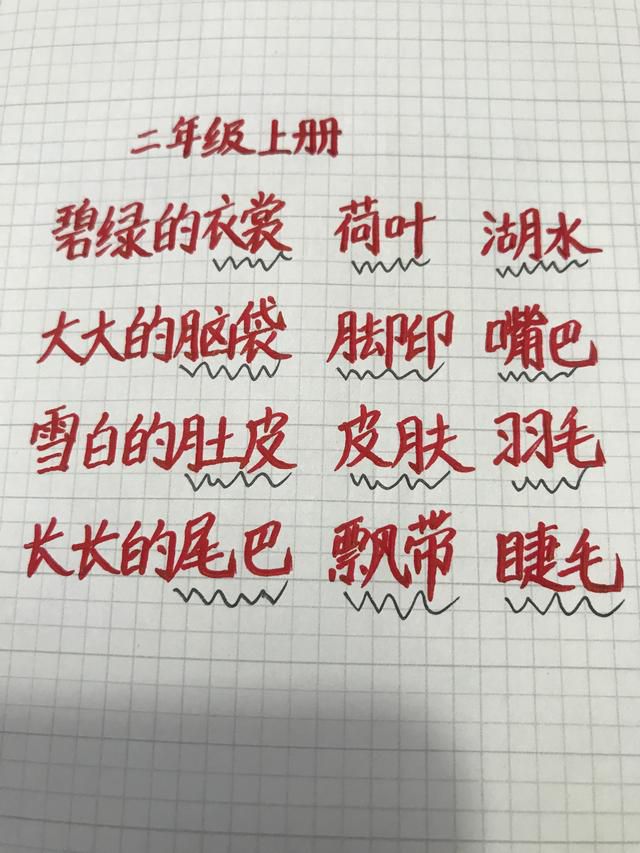 二年级上册
碧绿的衣裳 荷叶 湖水
大大的脑袋 脚印 嘴巴
雪白的肚皮 皮肤 羽毛
长长的尾巴 飘带 睫毛